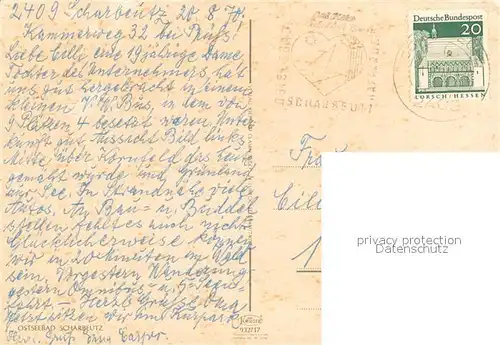 2409 Scharbeutz, 20.8.70.
Kammerweg 32 bei Prüß.
Liebe Cilli eine 19jährige Dame
Tochter des Unternehmers, hat
uns gut hergebracht in einem
kleinen V.W. Bus, in dem von
9 Plätzen 4 besetzt waren. Unter
kunft gut. Aussicht Bild links
Mitte über Kornfeld das heute
gemäht wurde und Grünland
zur See. In Strandnähe viele
Autos. An Bau- u. Buddel
stellen fehlt es auch nicht
Glücklicherweise können
wir in 20 Minuten im Wald
sein. Vorgestern Wanderung
gestern Omnibus- u.
fahrt. - Herzl. Grüße
Jetzt sitzen wir im Kurpark.
OSTSEEBAD SCHARBEUTZ
Herzl. Gruß
Deutsche Bundespost
20
LORSCH/HESSEN
SCHARBEUTZ
Frau
Cilli
1
932/17
privacy protection
Datenschutz